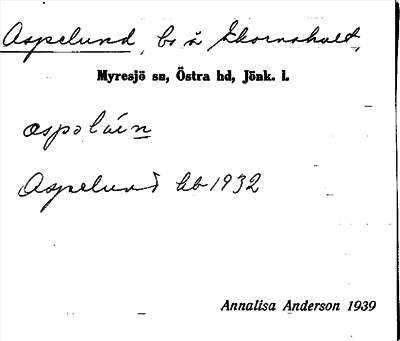 Aspelund, bs å Ekornahult,
Myresjö sn, Östra hd, Jönk. l.
aspoláin
Aspelund hb 1932
Annalisa Anderson 1939